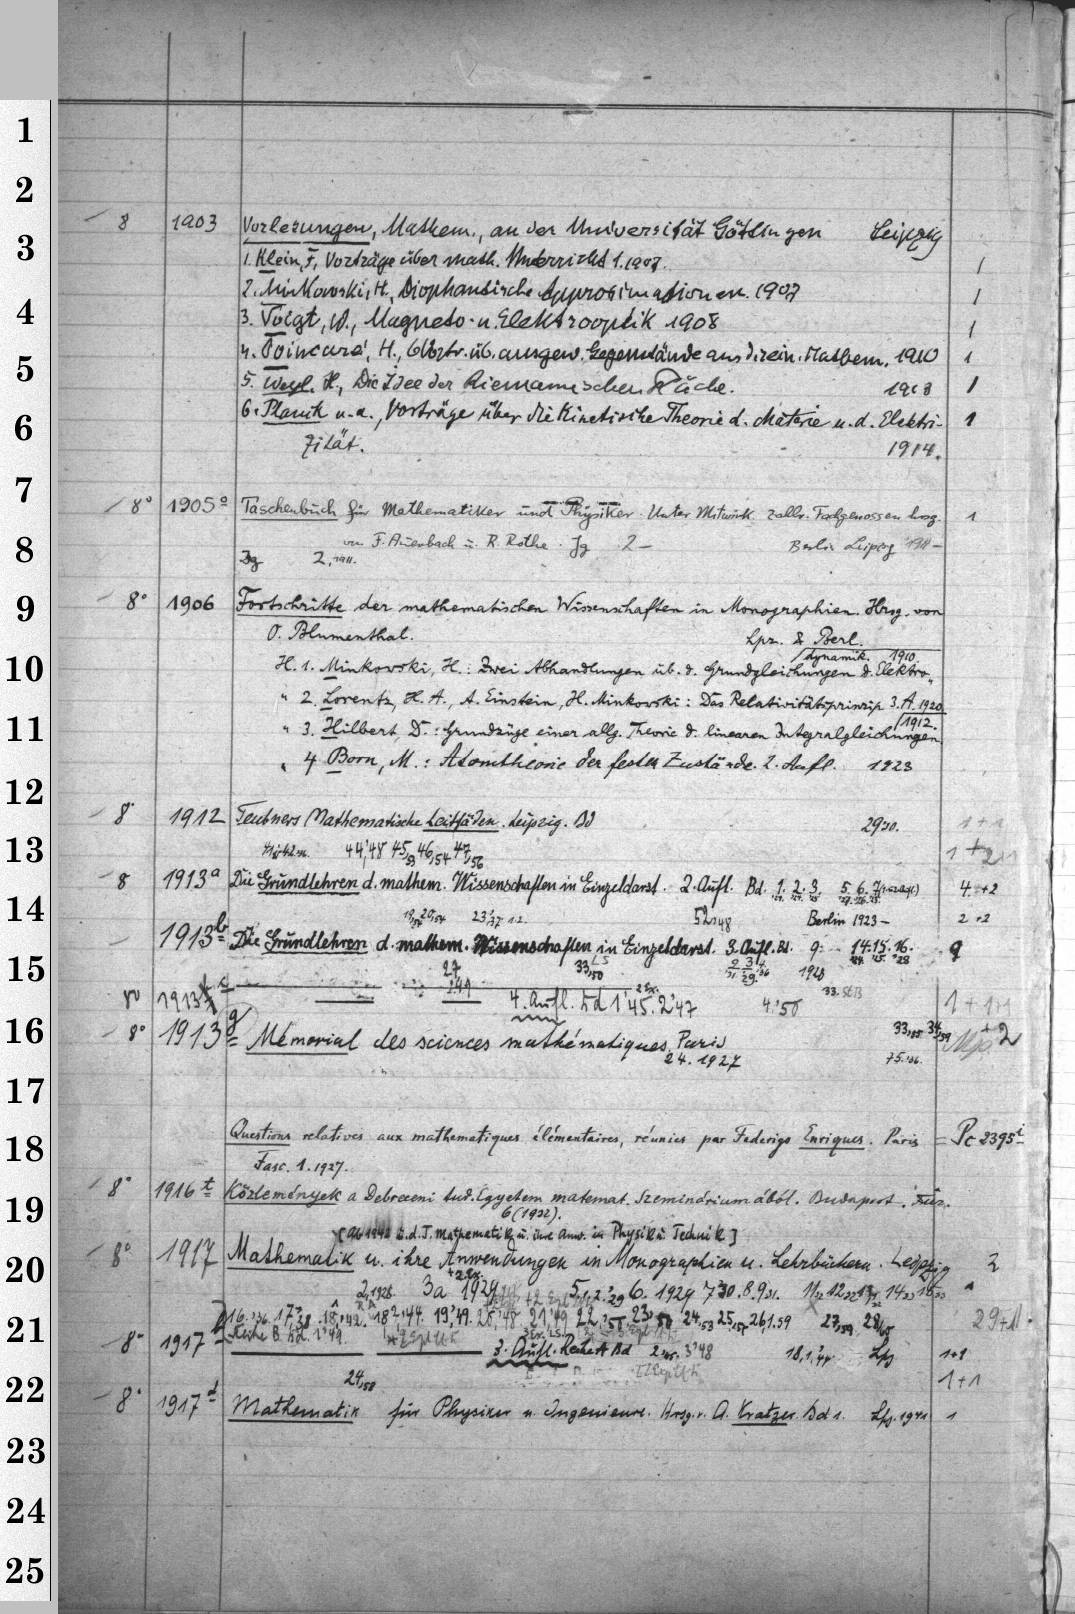 1
2
8 1903 Vorlesungen, Mathem., an der Universität Göttingen Leipzig
3
1. Klein, F., Vorträge über math. Unterricht 1. 1907. 1
2. Minkowski, H., Diophantische Approximationen. 1907 1
4
3. Voigt, W., Magneto- u. Elektrooptik 1908 1
4. Poincaré, H., 6 Vortr. üb. ausgew. Gegenstände aus d. rein. Mathem. 1910 1
5
5. Weyl, H., Die Idee der Riemannschen Fläche. 1913 1
6
6. Planck u. a., Vorträge über die Kinetische Theorie d. Materie u. d. Elektri-
zität. 1914.
7
8° 1905a Taschenbuch für Mathematiker und Physiker. Unter Mitwirk. zahlr. Fachgenossen hrsg. 1
von F. Auerbach u. R. Rothe. Jg 2— Berlin Leipzig 1911—
8
Jg 2, 1911.
9
8° 1906 Fortschritte der mathematischen Wissenschaften in Monographien. Hrsg. von
O. Blumenthal. Lpz. & Berl.
dynamik. 1910.
10
H. 1. Minkowski, H.: Zwei Abhandlungen üb. d. Grundgleichungen d. Elektro-
" 2. Lorentz, H. A., A. Einstein, H. Minkowski: Das Relativitätsprinzip 3. A. 1920
1912.
11
" 3. Hilbert, D.: Grundzüge einer allg. Theorie d. linearen Integralgleichungen
" 4 Born, M.: Atomtheorie der festen Zustände. 2. Aufl. 1923
12
8° 1912 Teubners Mathematische Leitfäden. Leipzig. Bd 1+1
13
44,'48 45,53 46,54 47,56
8 1913a Die Grundlehren d. mathem. Wissenschaften in Einzeldarst. 2. Aufl. Bd. 1. 2. 3. 5. 6. 7. 4. +2
14
52,48 Berlin 1923— 2 +2
1913b Die Grundlehren d. mathem. Wissenschaften in Einzeldarst. 3. Aufl. Bd. 9. 14. 15. 16. 9
15
27, 33,50 1928
4. Aufl. Bd 1'45. 2'47 4.'50 1+1+1
16
8° 1913g Mémorial des sciences mathématiques. Paris
24. 1927
17
18
Questions relatives aux mathematiques élémentaires, réunies par Federigo Enriques. Paris = Pc 2395i
Fasc. 1. 1927.
8° 1916t Közlemények a Debreceni tud. Egyetem matemat. Szemináriumából. Budapest. Füz.
19
6 (1932).
[Ab 1940 u. d. T. Mathematik u. ihre Anw. in Physik u. Technik]
20
8° 1917 Mathematik u. ihre Anwendungen in Monographien u. Lehrbüchern. Leipzig 2
2, 1928. 3a 1929 5,1.2.'29 6. 1929 7'30. 8.9,31.
21
16.'36 17,'39 18,'42 18²,'44. 19,'49. 21,'49 24,53 25,57 26,1.59 27,59 29+11
Reihe B. Bd. 1'49.
8° 1917 3. Aufl. Reihe A Bd 3'48 18,1,'44 Lpz 1+1
22
24,58 1+1
8° 1917d Mathematik für Physiker u. Ingenieure. Hrsg. v. A. Kratzer. Bd 1. Lpz. 1941 1
23
24
25